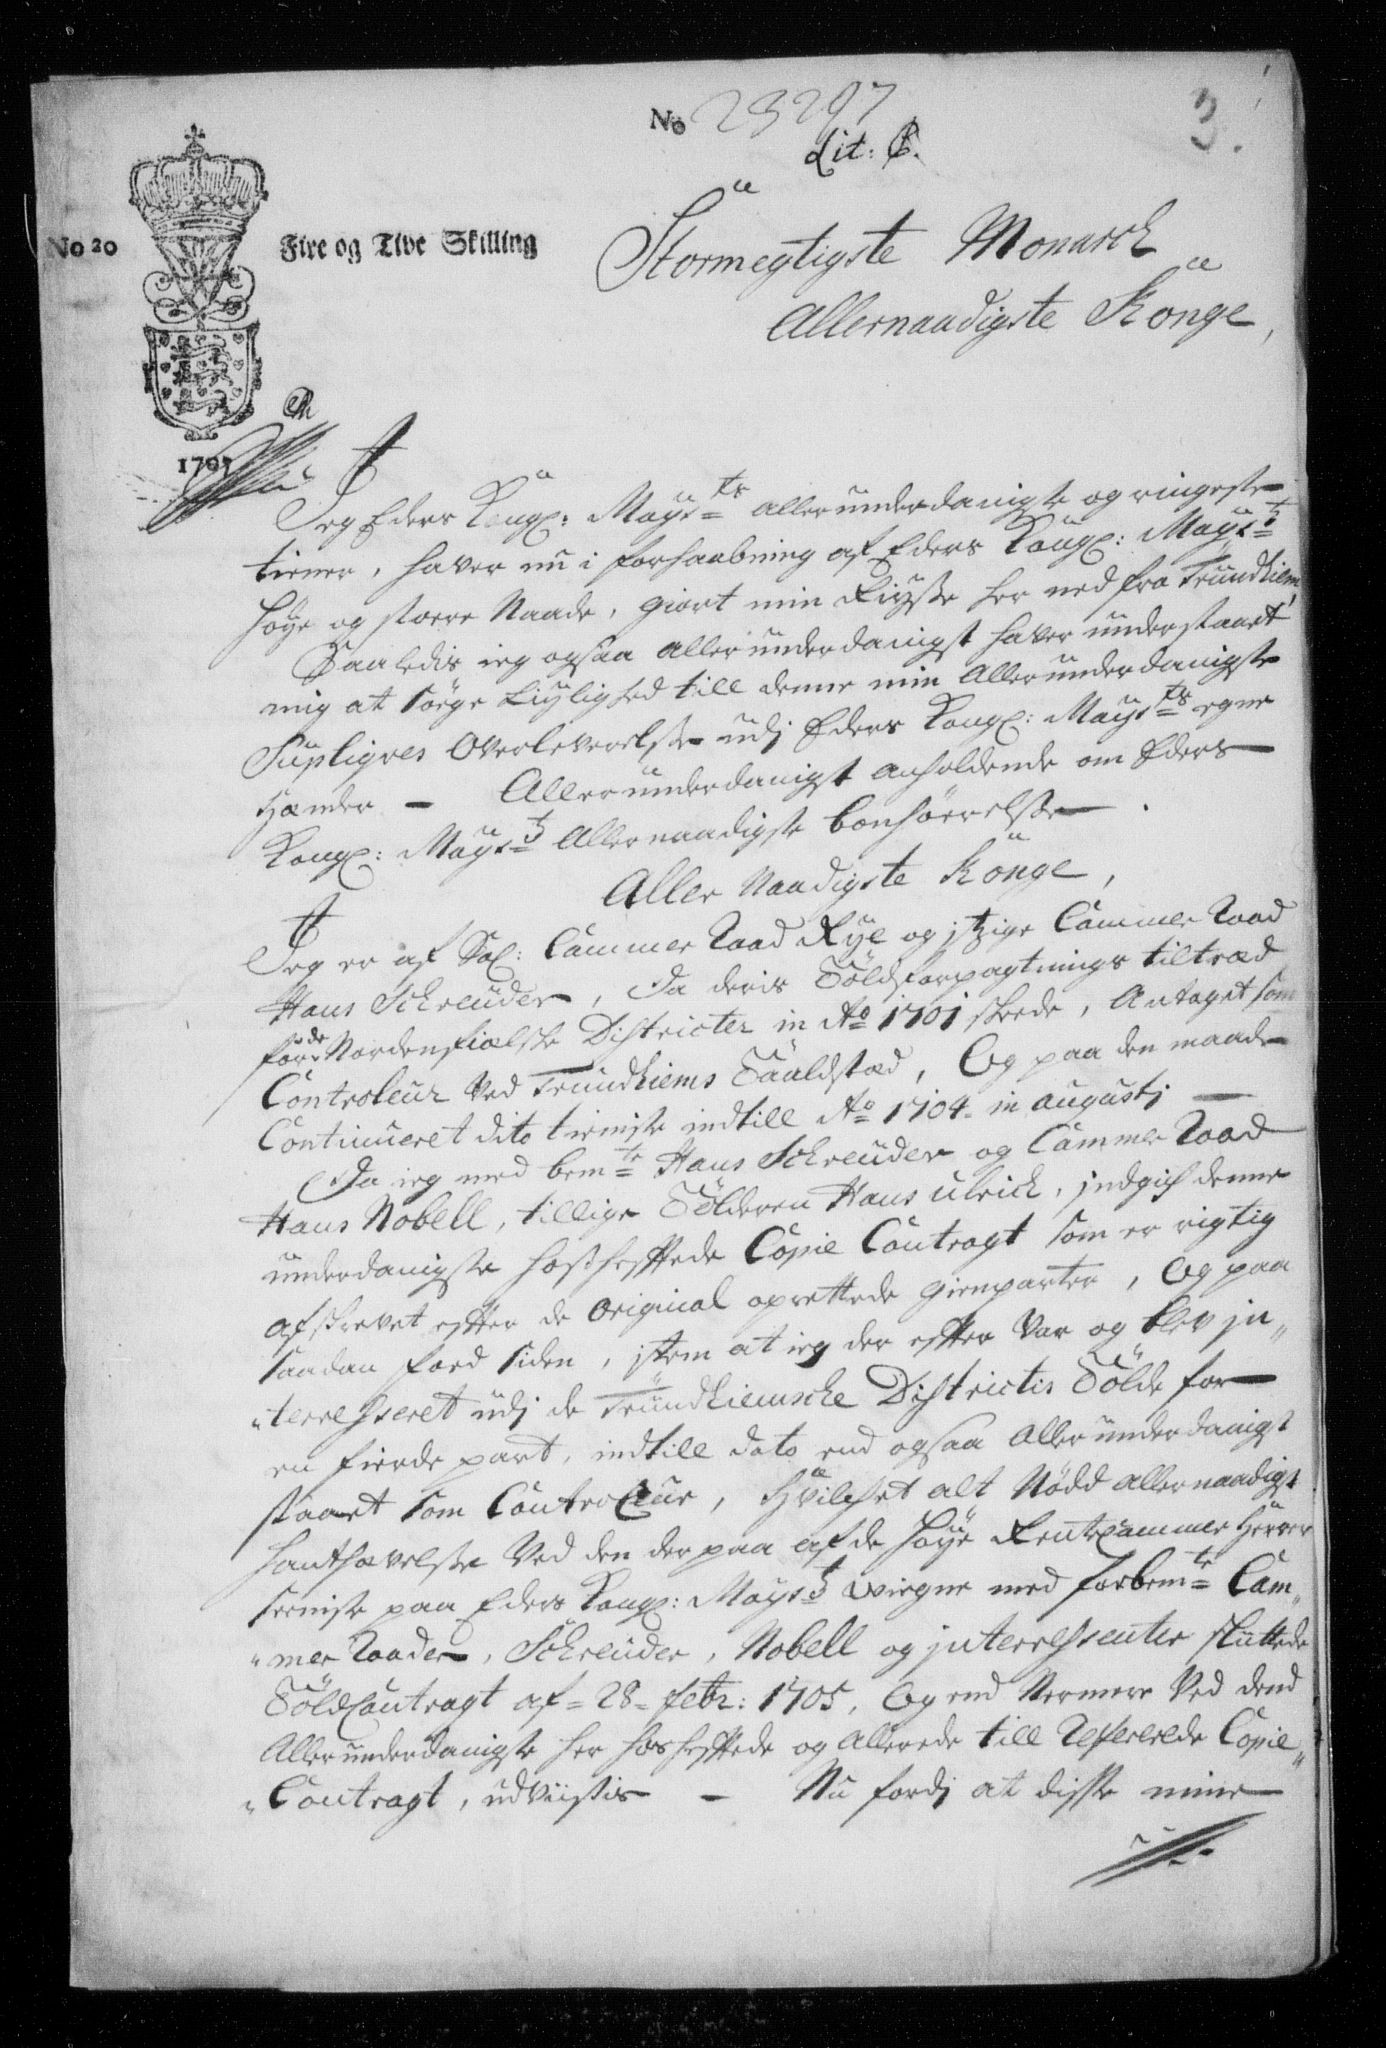 No 23297
3.
Lit: C.
No 20
Fire og Tive Skilling
Stormegtigste Monarch
Allernaadigste Konge,
1705
Jeg Eders Kongl: Mayts allerunderdanigste og ringeste
tiener, haver nu i forhaabning af Eders Kongl: Mayts
høye og stoere Naade, giort min Reyse her ned fra Trundhiem,
Saaledis ieg ogsaa allerunderdanigst haver understaaet
mig at søge Leylighed till denne min Allerunderdanigste
Supliqves Overleverelse udj Eders Kongl: Mayts egne
Hænder – Allerunderdanigst anholdende om Eders
Kongl: Mayts Allernaadigste bønhørelse.
Aller Naadigste Konge,
Jeg er af Sal: Cammer Raad Rye og jtzige Cammer Raad
Hans Schreuder, Da deris Toldforpagtnings tiltræd
for de Nordenfielske Districter in Ao 1701 skeede, Antaget som
Controleur ved Trundhiems Tauldstæd, Og paa den maade
Continueret dito tieniste indtill Ao 1704 in augustj
Da ieg med bemte Hans Schreuder og Cammer Raad
Hans Nobell, tillige Tolderen Hans ulrich, jndgich denne
underdanigste hoshefftede Copie Contragt som er rigtig
afskrevet efftter de Original oprettede gienparter, Og paa
saadan foed siden, jtem at ieg der effter var og blev jn„
„terresseret udj de Trundhiemsche Districtis Tolde for
en fierde part, indtill dato end ogsaa Allerunderdanigst
staaet som Controleur, Hvilchet alt Nødd allernaadigst
hanthævelse Ved den der paa af de høye RenteCammer Herrer
sterniste paa Eders Kongl: Mayts wiegne med forbemte Cam„
„mer Raader, Schreuder, Nobell og jnterressenter sluttede
ToldContragt af 28 febr: 1705, Og end Nermere Ved dend
Allerunderdanigste her hoshefftede og Allerede till Refererede Copie„
„Contragt, udviisis – Nu fordj at disse mine